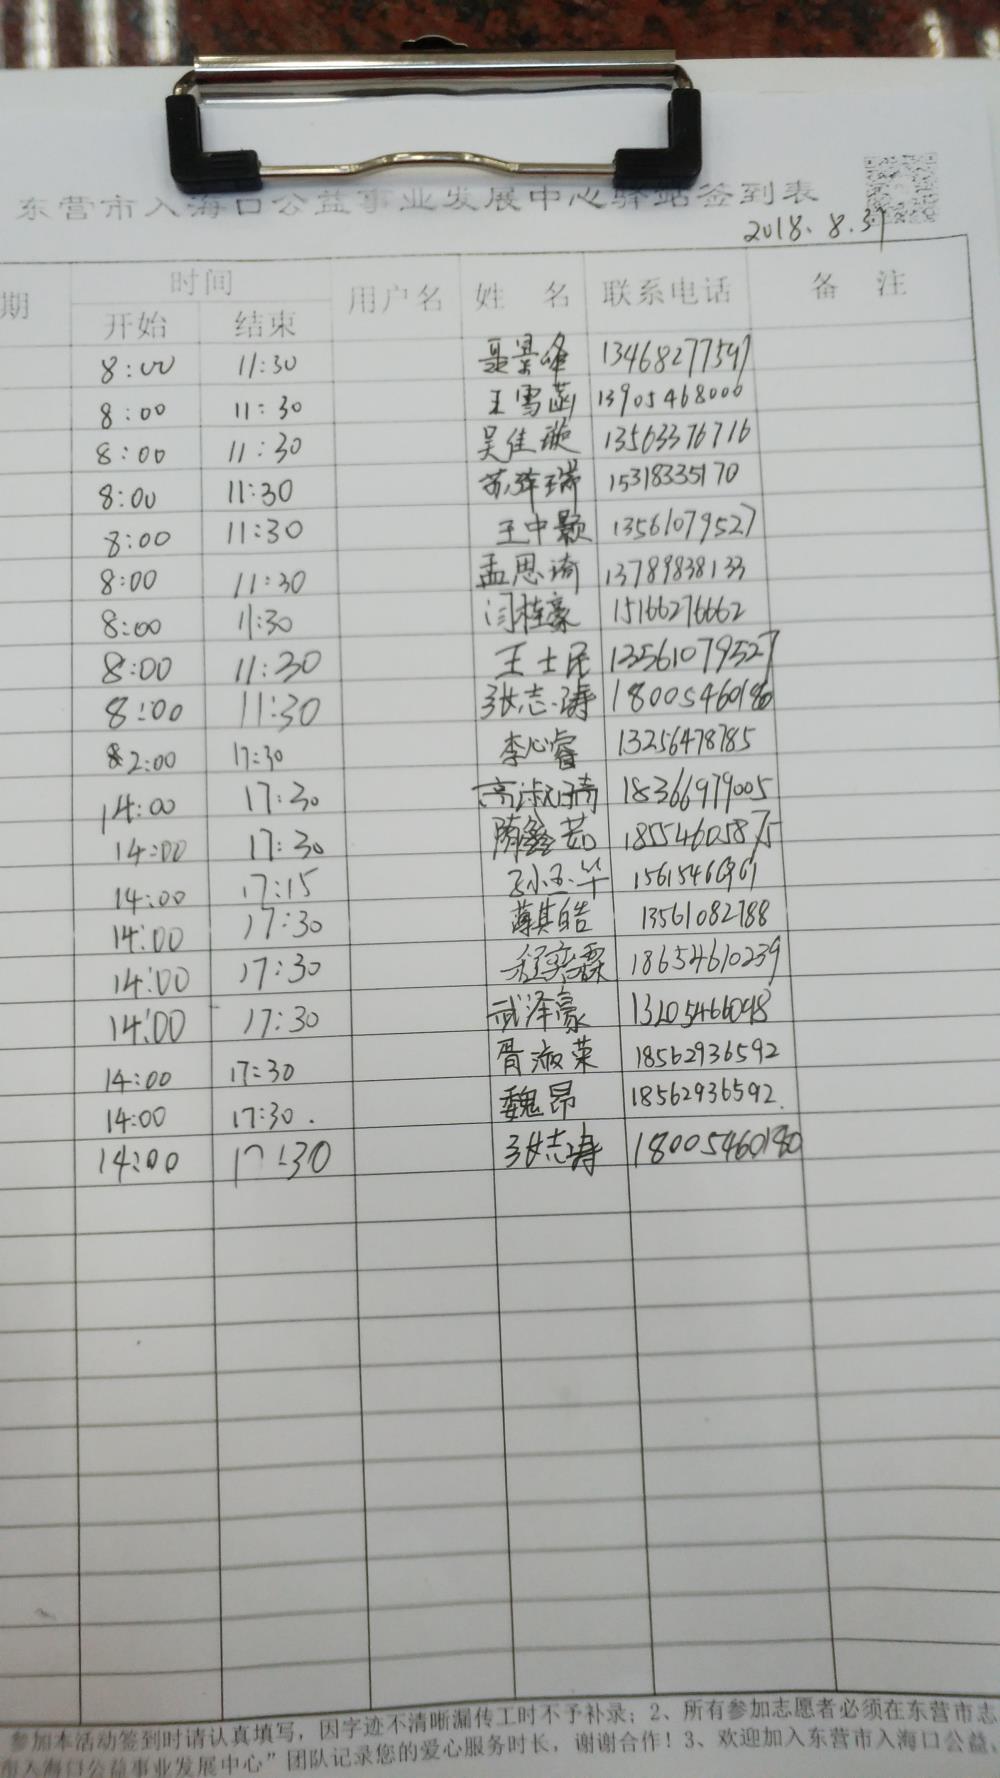 东营市入海口公益事业发展中心驿站签到表
2018.8.31
期 时间 用户名 姓 名 联系电话 备 注
开始 结束
8:00 11:30 聂景峰 13468277597
8:00 11:30 王雪菡 13905468000
8:00 11:30 吴佳璇 13563376716
8:00 11:30 苏泽瑞 15318335170
8:00 11:30 王中颢 13561079527
8:00 11:30 孟思琦 13789838133
8:00 11:30 闫桂豪 15166276662
8:00 11:30 王士民 13561079527
8:00 11:30 张志涛 18005460180
2:00 17:30 李心睿 13256478785
14:00 17:30 高淑婧 18366979005
14:00 17:30 隋鑫茹 18554605875
14:00 17:15 孙玉华
14:00 17:30 薄其皓 13561082788
14:00 17:30 程奕霖 18654610239
14:00 17:30 武泽豪 13205466098
14:00 17:30 胥淑荣 18562936592
14:00 17:30. 魏昂 18562936592.
14:00 17:30 张志涛 18005460180
参加本活动签到时请认真填写，因字迹不清晰漏传工时不予补录；2、所有参加志愿者必须在东营市志
市入海口公益事业发展中心”团队记录您的爱心服务时长，谢谢合作！3、欢迎加入东营市入海口公益、